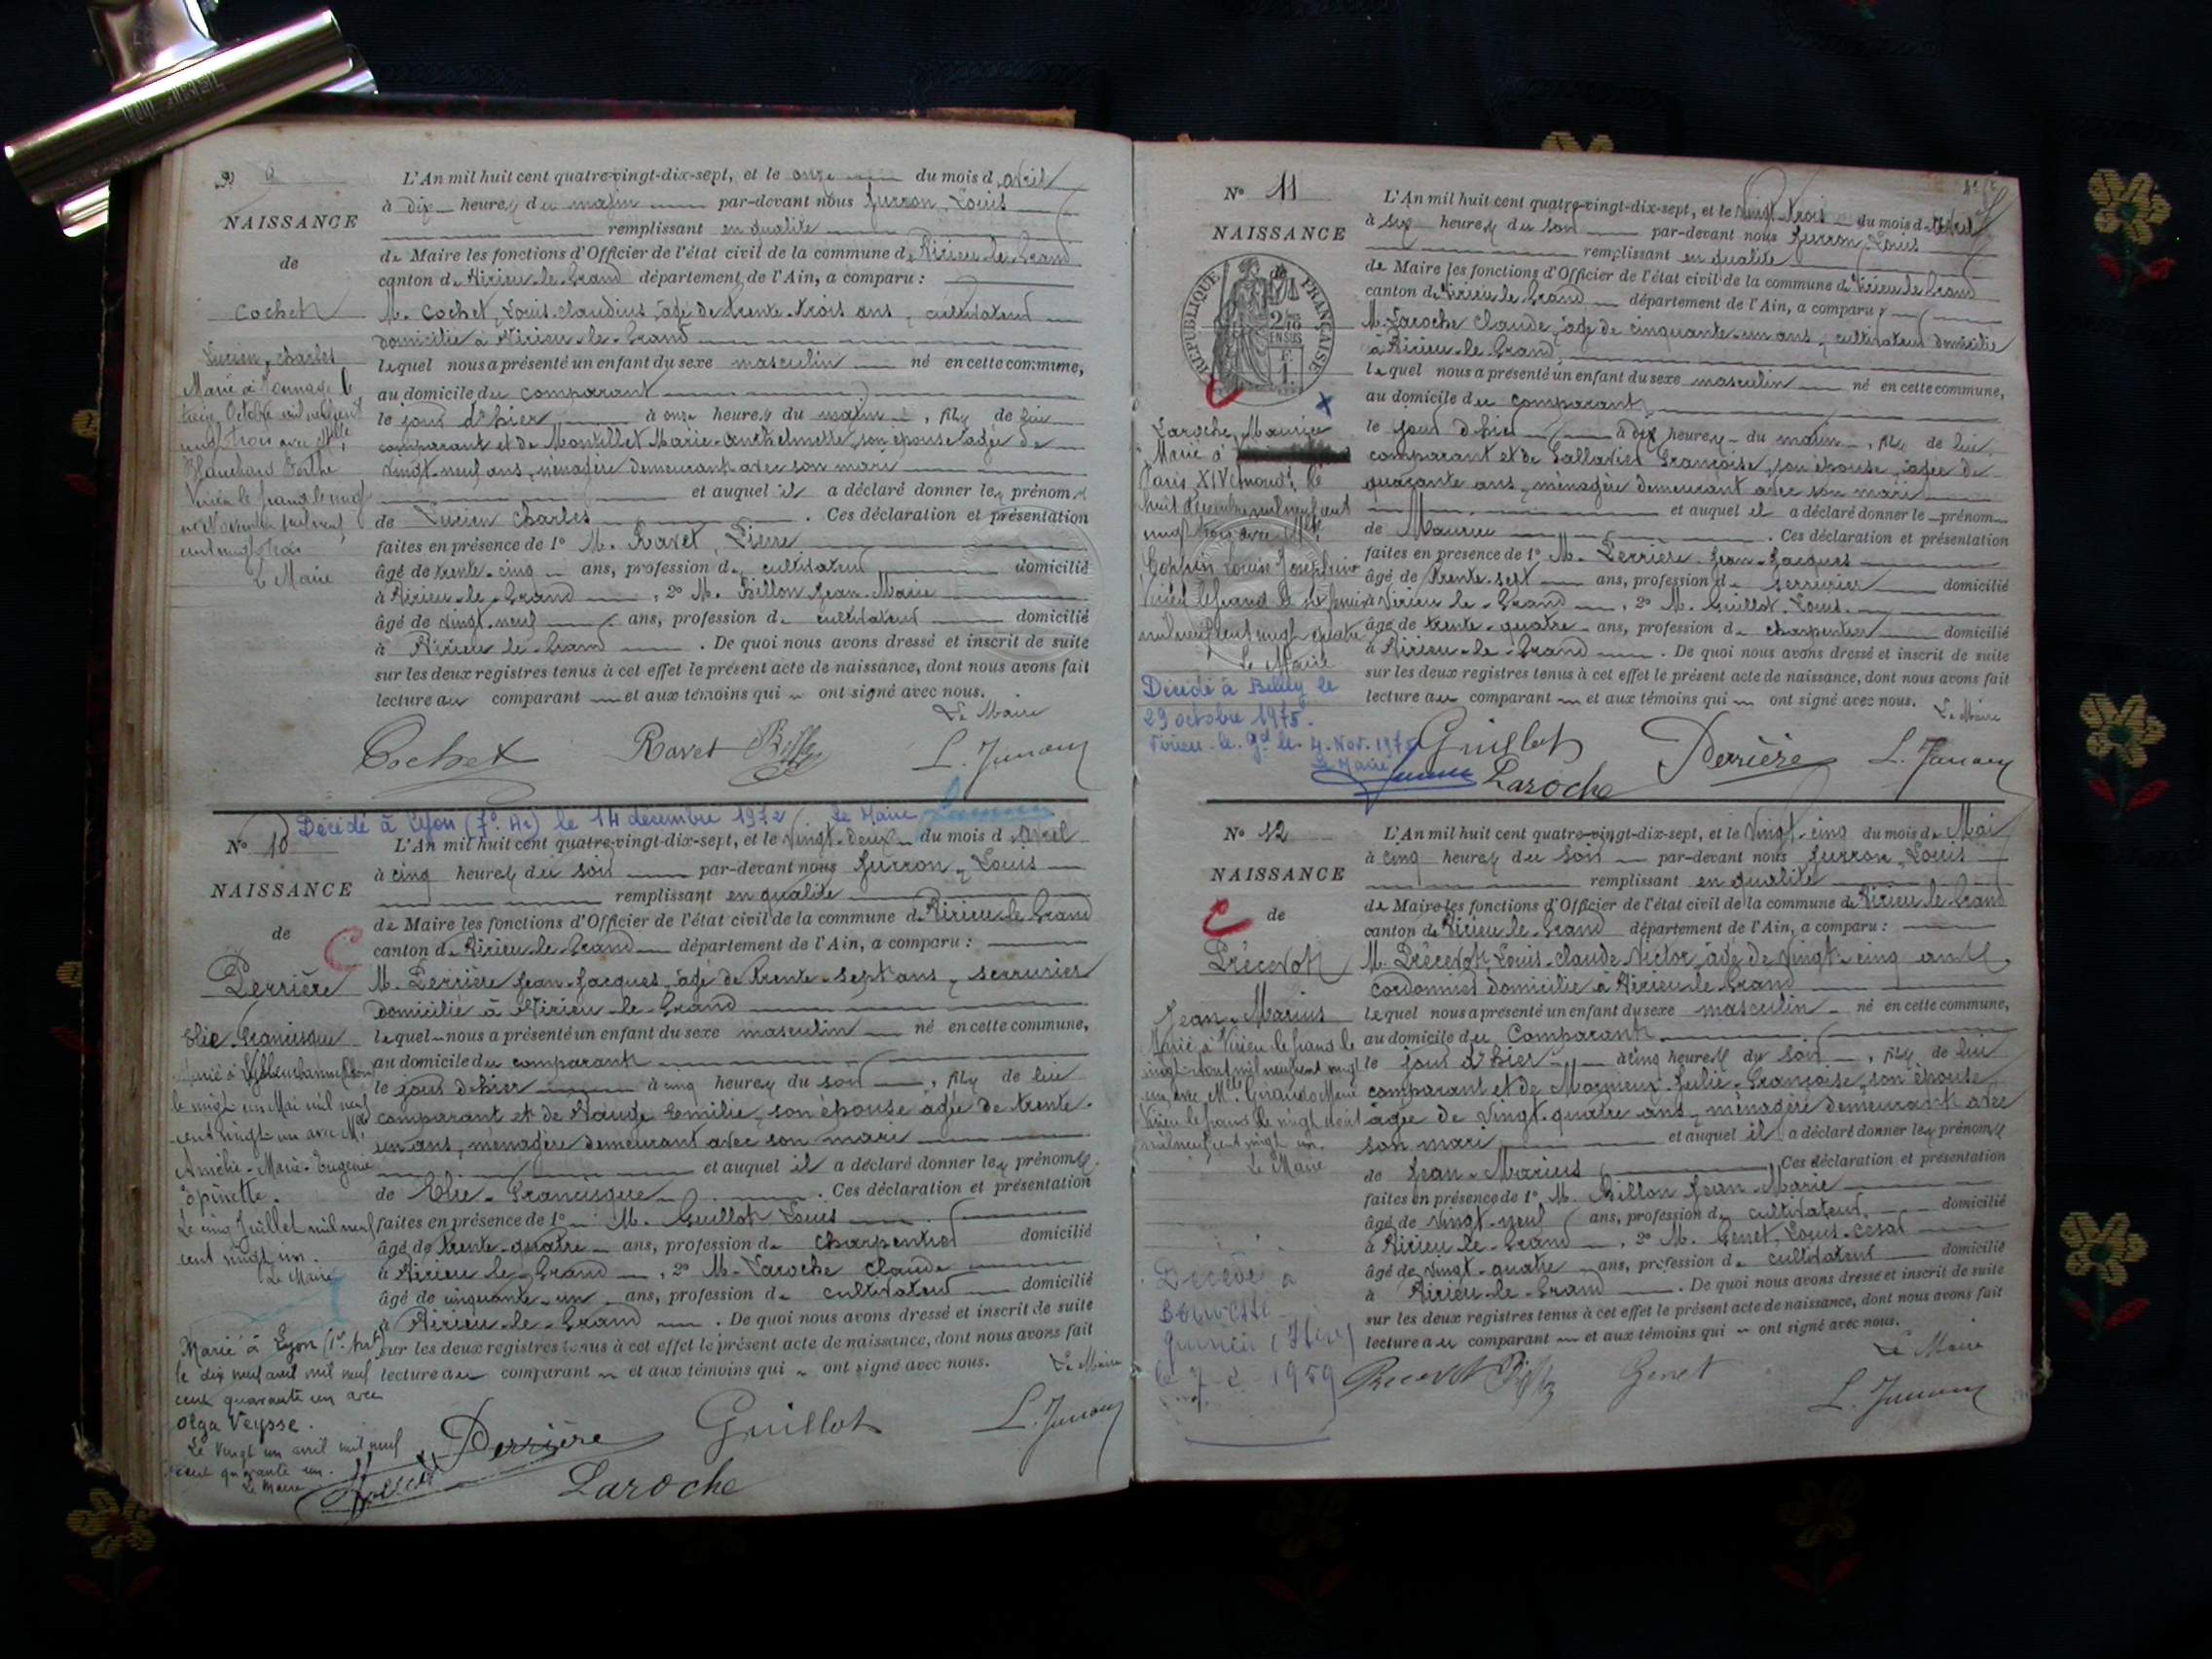 N° 9
NAISSANCE
de
Cochet
Lucien, Charles
Marié à
treize Octobre mil neuf cent
vingt trois avec Mlle
Blanchard Berthe
Virieu le Grand le neuf
Novembre mil neuf
cent vingt trois
Le Maire
L'An mil huit cent quatre-vingt-dix-sept, et le onze du mois d'avril
à dix heures du matin par-devant nous Jurron, Louis
remplissant en qualité
de Maire les fonctions d'Officier de l'état civil de la commune de Virieu-le-Grand
canton de Virieu-le-Grand département de l'Ain, a comparu :
M. Cochet, Louis-Claudius, âgé de trente-trois ans, cultivateur
domicilié à Virieu-le-Grand
lequel nous a présenté un enfant du sexe masculin né en cette commune,
au domicile du comparant
le jour d'hier à onze heures du matin, fils de lui
comparant et de Montillet Marie-Anthelmette, son épouse âgée de
vingt-neuf ans, ménagère demeurant avec son mari
et auquel il a déclaré donner les prénoms
de Lucien Charles. Ces déclaration et présentation
faites en présence de 1° M. Ravet, Pierre
âgé de trente-cinq ans, profession de cultivateur domicilié
à Virieu-le-Grand, 2° M. Billon Jean-Marie
âgé de vingt-neuf ans, profession de cultivateur domicilié
à Virieu-le-Grand. De quoi nous avons dressé et inscrit de suite
sur les deux registres tenus à cet effet le présent acte de naissance, dont nous avons fait
lecture au comparant et aux témoins qui ont signé avec nous.
Le Maire
Cochet Ravet L. Jurron
Décédé à Lyon (7e Ar) le 14 décembre 1972 Le Maire
N° 10
NAISSANCE
de
Perrière
Elie-Francisque
Marié à Villeurbanne (Rhône)
le vingt un Mai mil neuf
cent vingt un avec Mlle
Amélie-Marie-Eugénie
Epinette.
Le cinq Juillet mil neuf
cent vingt un.
Le Maire
Marié à Lyon (1er Art)
le dix neuf avril mil neuf
cent quarante un avec
Olga Veysse.
Le Vingt un avril mil neuf
cent quarante un.
Le Maire
L'An mil huit cent quatre-vingt-dix-sept, et le vingt-deux du mois d'avril
à cinq heures du soir par-devant nous Jurron, Louis
remplissant en qualité
de Maire les fonctions d'Officier de l'état civil de la commune de Virieu-le-Grand
canton de Virieu-le-Grand département de l'Ain, a comparu :
M. Perrière Jean-Jacques, âgé de trente-sept ans, serrurier
domicilié à Virieu-le-Grand
lequel nous a présenté un enfant du sexe masculin né en cette commune,
au domicile du comparant
le jour d'hier à cinq heures du soir, fils de lui
comparant et de Naude Emilie, son épouse âgée de trente-
un ans, ménagère demeurant avec son mari
et auquel il a déclaré donner les prénoms
de Elie-Francisque. Ces déclaration et présentation
faites en présence de 1° M. Guillot Louis
âgé de trente-quatre ans, profession de charpentier domicilié
à Virieu-le-Grand, 2° M. Laroche Claude
âgé de cinquante-un ans, profession de cultivateur domicilié
à Virieu-le-Grand. De quoi nous avons dressé et inscrit de suite
sur les deux registres tenus à cet effet le présent acte de naissance, dont nous avons fait
lecture au comparant et aux témoins qui ont signé avec nous.
Le Maire
Perrière Guillot L. Jurron
Laroche
N° 11
NAISSANCE
de
RÉPUBLIQUE FRANÇAISE
2/10 EN SUS
F. 1
Laroche, Maurice
Marié à
Paris XIVe arrondt, le
huit décembre mil neuf cent
vingt trois avec Mlle
Coppin Louise Joséphine
Virieu le Grand le six Janvier
mil neuf cent vingt quatre
Le Maire
Décédé à Belley le
29 octobre 1975.
Virieu-le-Gd le 4. Nov. 1975
Le Maire
L'An mil huit cent quatre-vingt-dix-sept, et le vingt-trois du mois d'avril
à six heures du soir par-devant nous Jurron, Louis
remplissant en qualité
de Maire les fonctions d'Officier de l'état civil de la commune de Virieu-le-Grand
canton de Virieu-le-Grand département de l'Ain, a comparu :
M. Laroche Claude, âgé de cinquante-un ans, cultivateur domicilié
à Virieu-le-Grand
lequel nous a présenté un enfant du sexe masculin né en cette commune,
au domicile du comparant
le jour d'hier à dix heures du matin, fils de lui
comparant et de Gallavier Françoise, son épouse, âgée de
quarante ans, ménagère demeurant avec son mari
et auquel il a déclaré donner le prénom
de Maurice. Ces déclaration et présentation
faites en présence de 1° M. Perrière Jean-Jacques
âgé de trente-sept ans, profession de serrurier domicilié
à Virieu-le-Grand, 2° M. Guillot, Louis
âgé de trente-quatre ans, profession de charpentier domicilié
à Virieu-le-Grand. De quoi nous avons dressé et inscrit de suite
sur les deux registres tenus à cet effet le présent acte de naissance, dont nous avons fait
lecture au comparant et aux témoins qui ont signé avec nous.
Le Maire
Guillot Perrière L. Jurron
Laroche
N° 12
NAISSANCE
de
Précevot
Jean-Marius
Marié à Virieu le Grand le
vingt
un avec Mlle Girardo Marie
Virieu le Grand le vingt
mil neuf cent vingt un.
Le Maire
Décédé à
Bouvesse
Quirieu (Isère)
le 7 2 1959
L'An mil huit cent quatre-vingt-dix-sept, et le Vingt-cinq du mois de Mai
à cinq heures du soir par-devant nous Jurron, Louis
remplissant en qualité
de Maire les fonctions d'Officier de l'état civil de la commune de Virieu-le-Grand
canton de Virieu-le-Grand département de l'Ain, a comparu :
M. Précevot, Louis-Claude-Victor, âgé de vingt-cinq ans,
cordonnier domicilié à Virieu-le-Grand
lequel nous a présenté un enfant du sexe masculin né en cette commune,
au domicile du Comparant
le jour d'hier à cinq heures du soir, fils de lui
comparant et de Julie-Françoise, son épouse
âgée de vingt-quatre ans, ménagère demeurant avec
son mari et auquel il a déclaré donner les prénoms
de Jean-Marius. Ces déclaration et présentation
faites en présence de 1° M. Billon Jean-Marie
âgé de vingt-neuf ans, profession de cultivateur domicilié
à Virieu-le-Grand, 2° M. Genet, Louis-César
âgé de vingt-quatre ans, profession de cultivateur domicilié
à Virieu-le-Grand. De quoi nous avons dressé et inscrit de suite
sur les deux registres tenus à cet effet le présent acte de naissance, dont nous avons fait
lecture au comparant et aux témoins qui ont signé avec nous.
Le Maire
Genet
L. Jurron